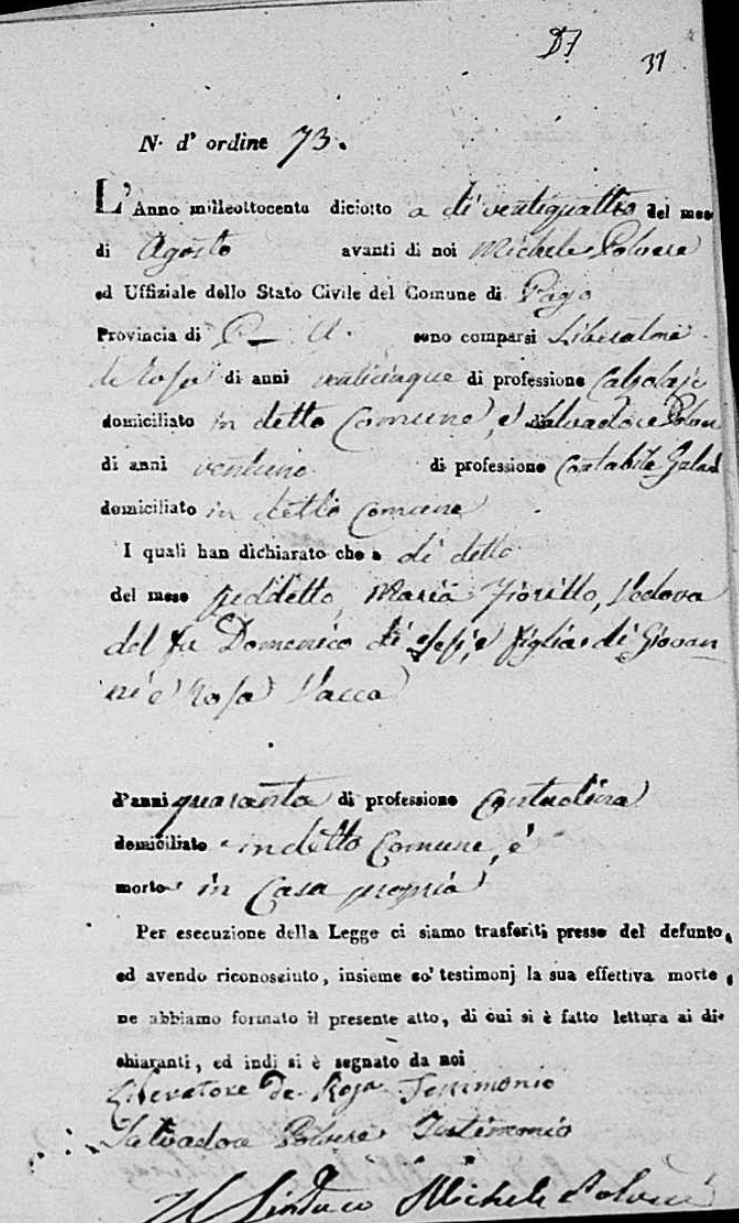 D7 31
N. d' ordine 73.
L'Anno milleottocento diciotto a dì ventiquattro del mese
di Agosto avanti di noi Michele Polvere
ed Uffiziale dello Stato Civile del Comune di Pago
Provincia di P U. sono comparsi Liberatore
de Rosa di anni venticinque di professione Calzolajo
domiciliato in detto Comune, e Salvadore Polvere
di anni ventuno di professione Contabile
domiciliato in detto Comune
I quali han dichiarato che a dì detto
del mese suddetto, Maria Fiorillo, Vedova
del fu Domenico di e figlia di Giovan
ni e Rosa Vacca
d'anni quaranta di professione Contadina
domiciliato in detto Comune, è
morto in Casa propria
Per esecuzione della Legge ci siamo trasferiti presso del defunto,
ed avendo riconosciuto, insieme co' testimonj la sua effettiva morte,
ne abbiamo formato il presente atto, di cui si è fatto lettura ai di-
chiaranti, ed indi si è segnato da noi
Liberatore de Rosa Testimonio
Salvadore Polvere Testimonio
Il Sindaco Michele Polvere